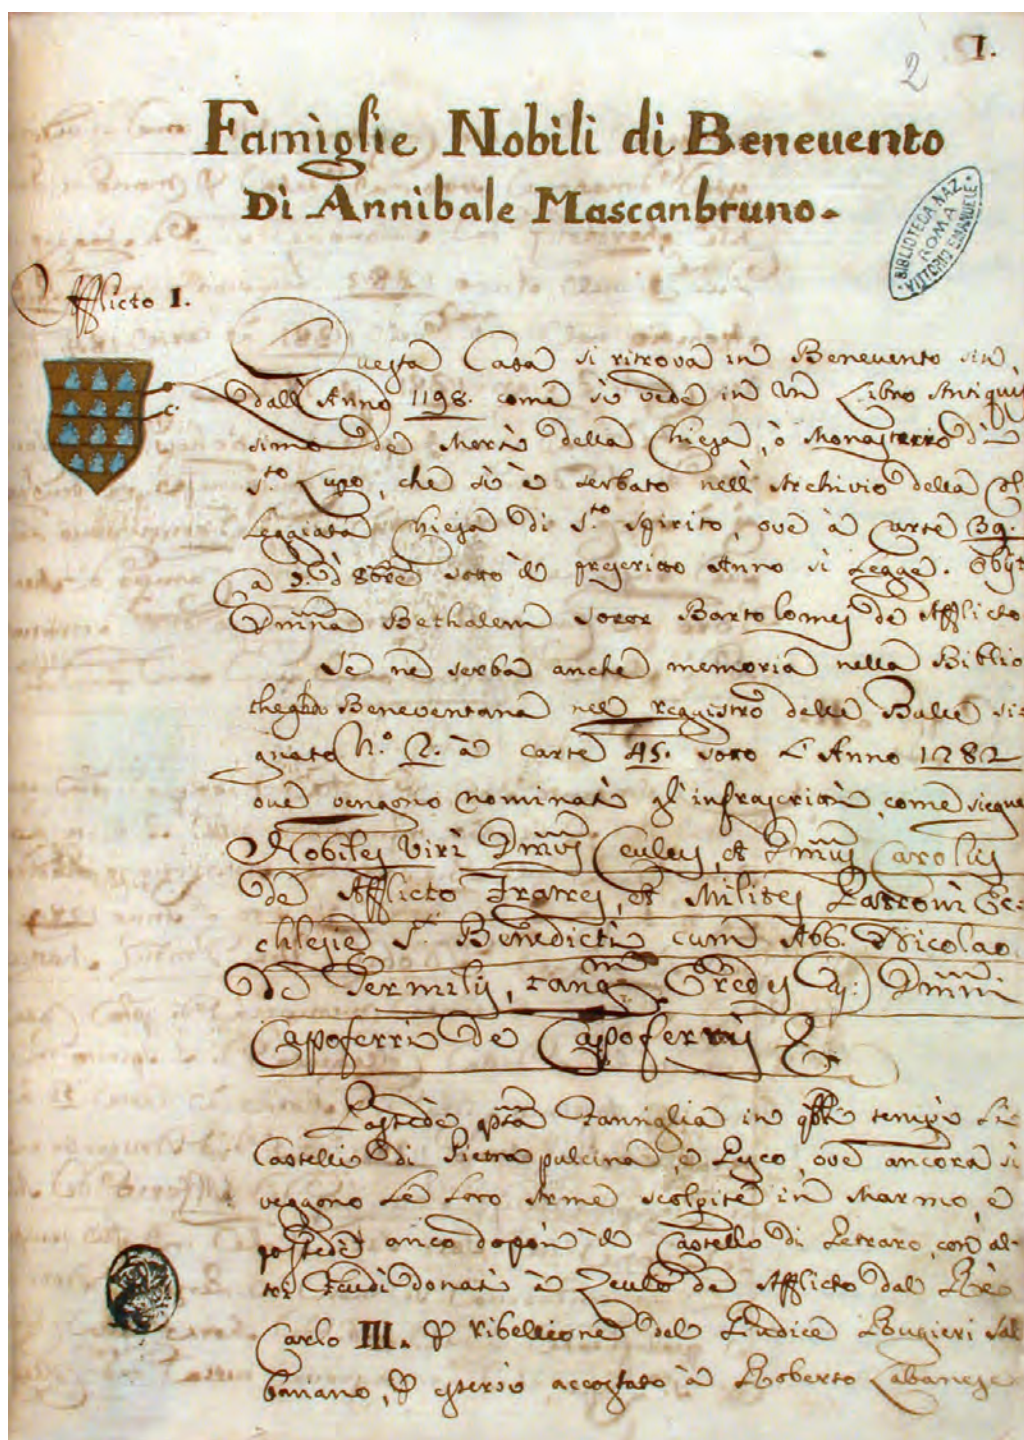 I.
2
Famiglie Nobili di Beneuento
Di Annibale Mascanbruno.
BIBLIOTECA NAZ. ROMA VITTORIO EMANUELE
Afflicto I.
Questa Casa si ritrova in Beneuento sin
dall'Anno 1198. come si vede in un Libro Antiquis
simo de Morti della Chiesa, ò Monasterro di
S.to Lupo, che si è serbato nell'Archivio della Col
leggiata Chiesa di S.to Spirito, ove à carte 39.
sotto il prescritto Anno si legge. Obijt
Dmna Bethalem soror Bartolomej de Afflicto
Se ne serba anche memoria nella Biblio
Beneventana nel reggistro delle Bulle si
gnato N.o 2. à carte 45. sotto l'Anno 1282
ove vengono nominati gl'infrascritti, come siegue
Nobiles Viri Dmnus Ceulus, et Dmnus Carolus
de Afflicto Fratres, et Milites Patroni Ec
clesie S.ti Benedicti cum Abb. Nicolao
de Termulis, tanq.m Eredes q: Dmni
Capoferri de Capoferris &
Possedè q.sta Famiglia in q.lli tempi li
Castelli di Pietra pulcina, e Pesco, ove ancora si
veggono le loro Arme scolpite in Marmo, e
possedè anco dopoi il Castello di Letraro, con al
tri Feudi donati à Zeulo de Afflicto dal Rè
Carlo III. P ribellione del Giudice Rugieri Sal
baniano, P essersi accostato à Roberto Cabanese